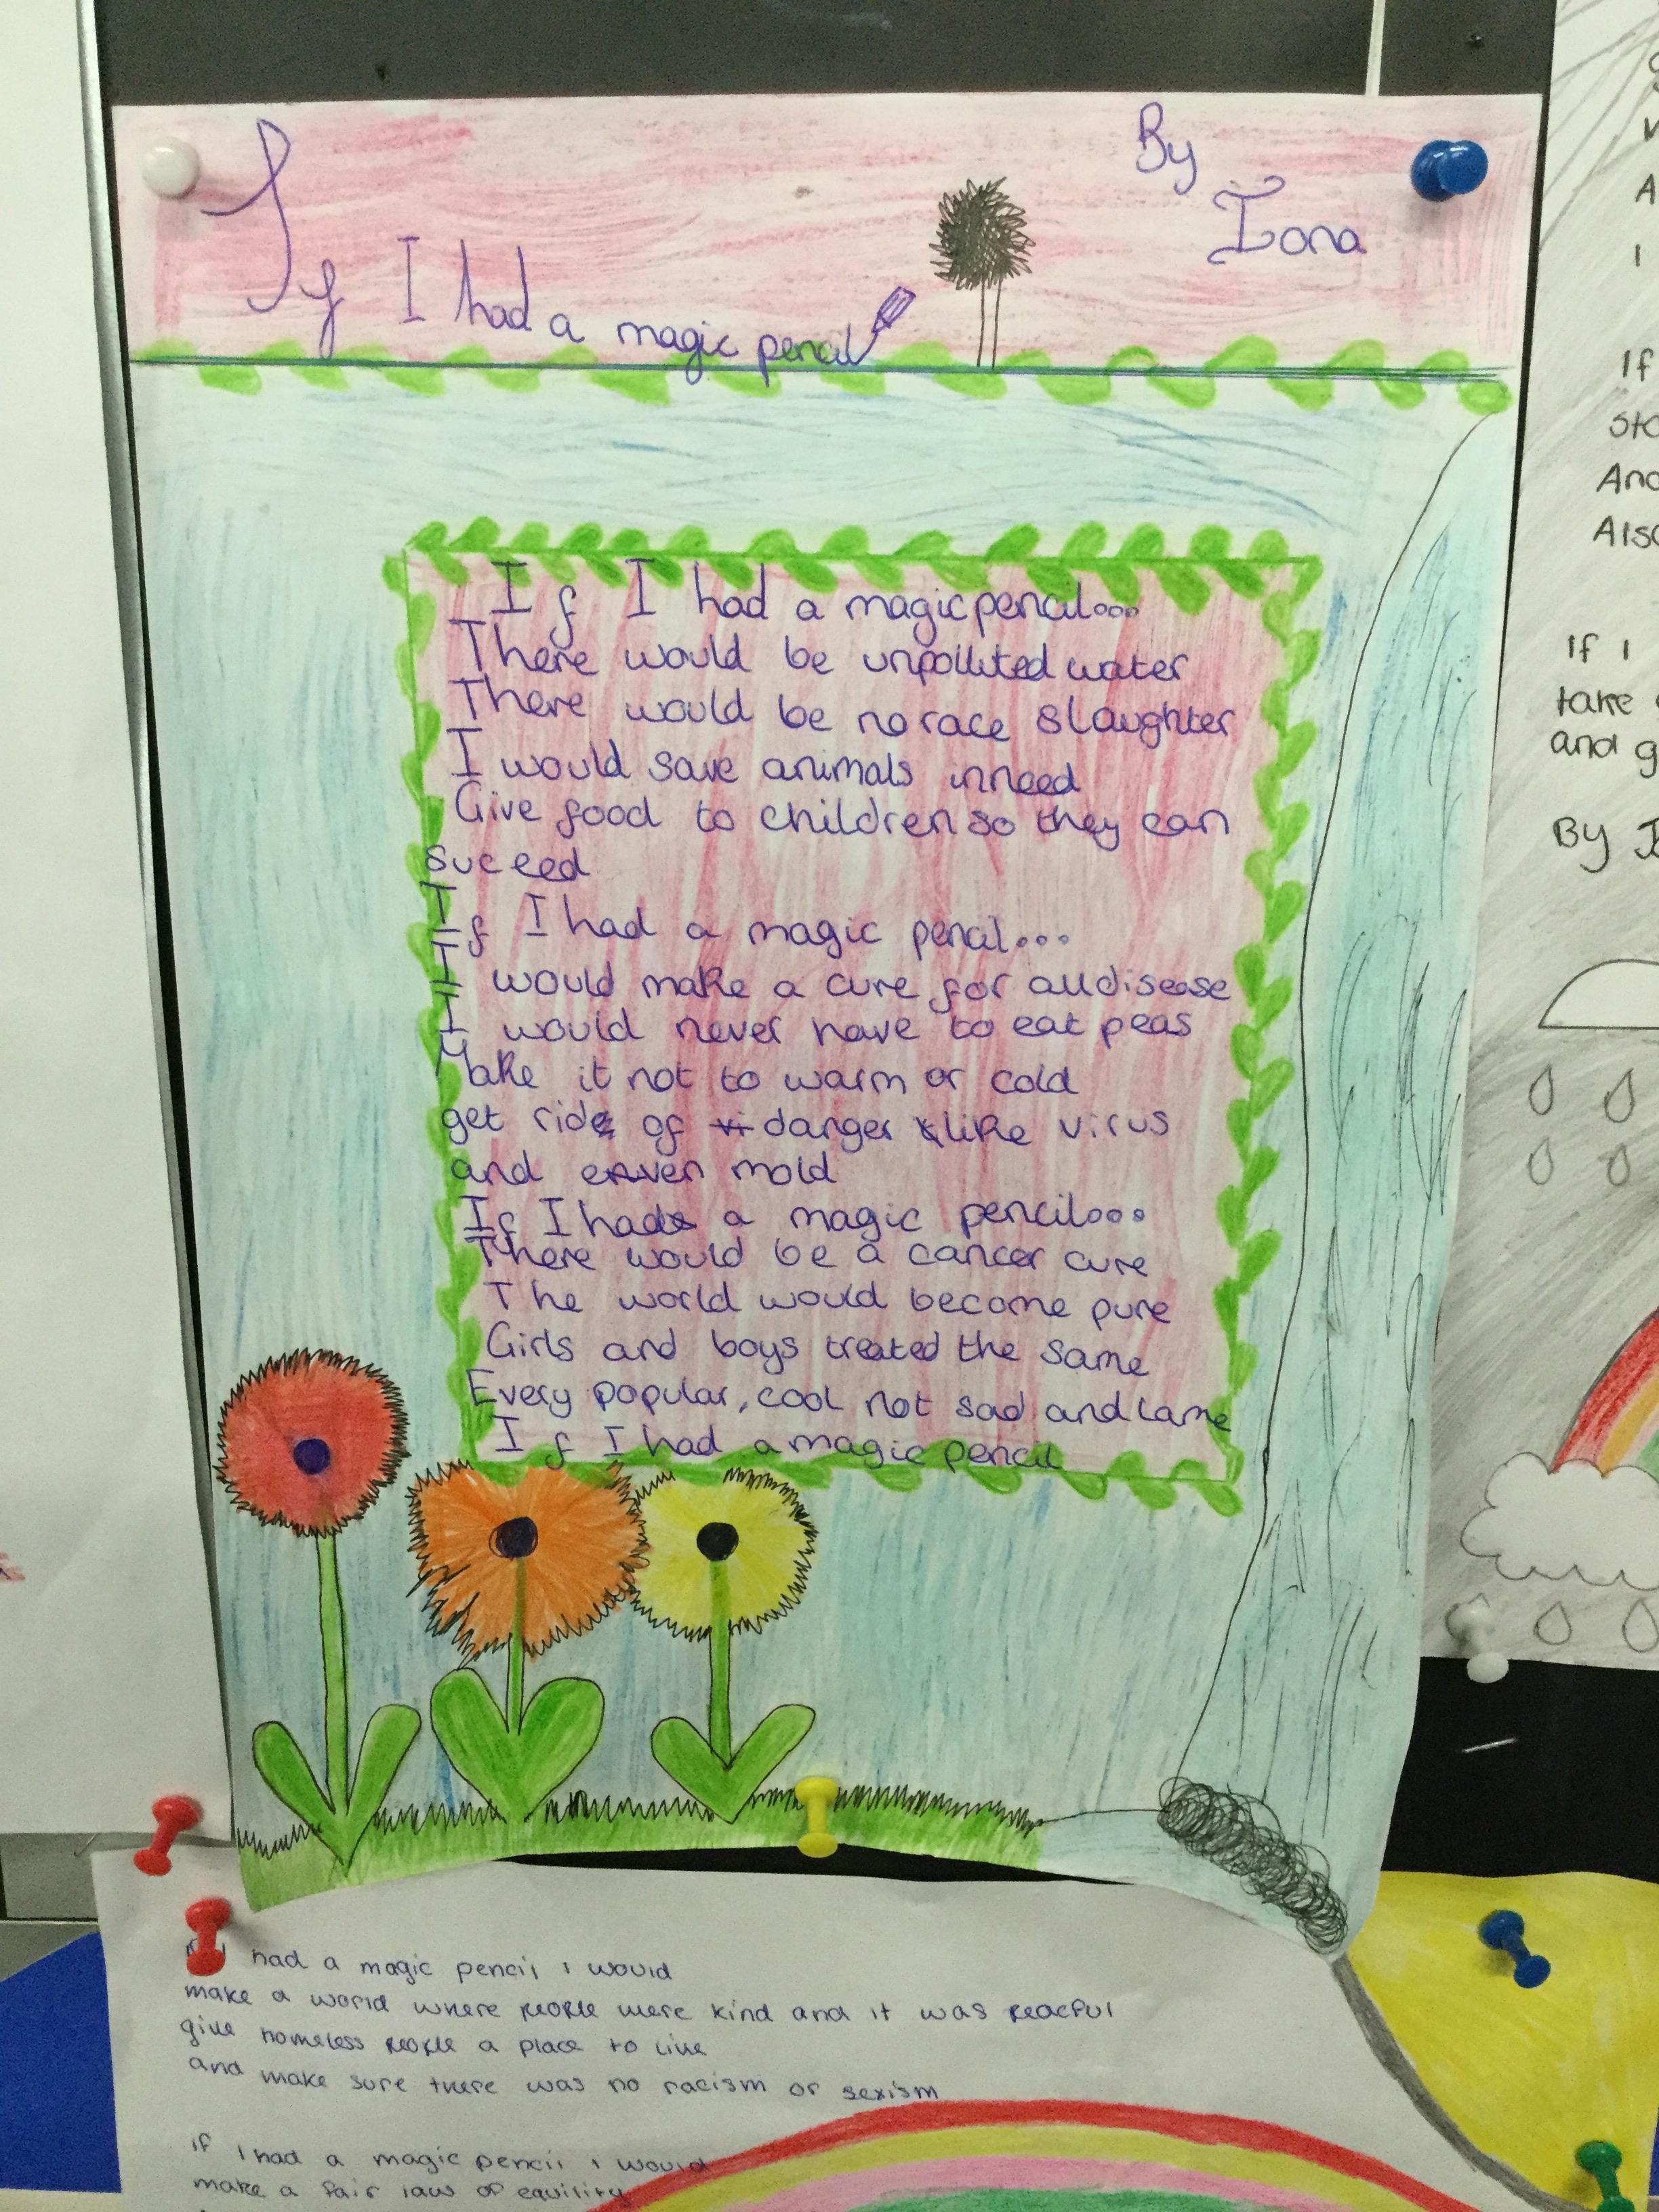 If I had a magic pencil
By
Iona
If I had a magic pencil...
There would be unpolluted water
There would be no race slaughter
I would save animals in need
Give food to children so they can
suceed
If I had a magic pencil...
I would make a cure for all disease
I would never have to eat peas
Make it not to warm or cold
get rid of danger like virus
and even mold
If I had a magic pencil...
There would be a cancer cure
The world would become pure
Girls and boys treated the same
Every popular, cool not sad and lame
If I had a magic pencil
had a magic pencil I would
make a world where people were kind and it was peacful
give homeless people a place to live
and make sure there was no racism or sexism
if I had a magic pencil I would
make a fair law of equility
If
Also
If I
take
and g
By